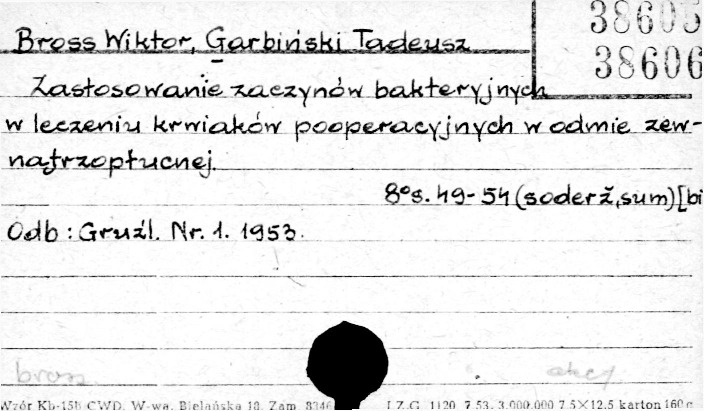 38605
38606
Bross Wiktor, Garbiński Tadeusz
Zastosowanie zaczynów bakteryjnych
w leczeniu krwiaków pooperacyjnych w odmie zew-
nątrzopłucnej.
8° s. 49-54 (soderž, sum) [bi
Odb : Gruźl. Nr. 1. 1953.
brosz. akc.
Wzór Kb-15b CWD. W-wa, Bielańska 18. Zam. 8346 I.Z.G. 1120 7.53. 3.000.000 7.5×12.5 karton 160 g